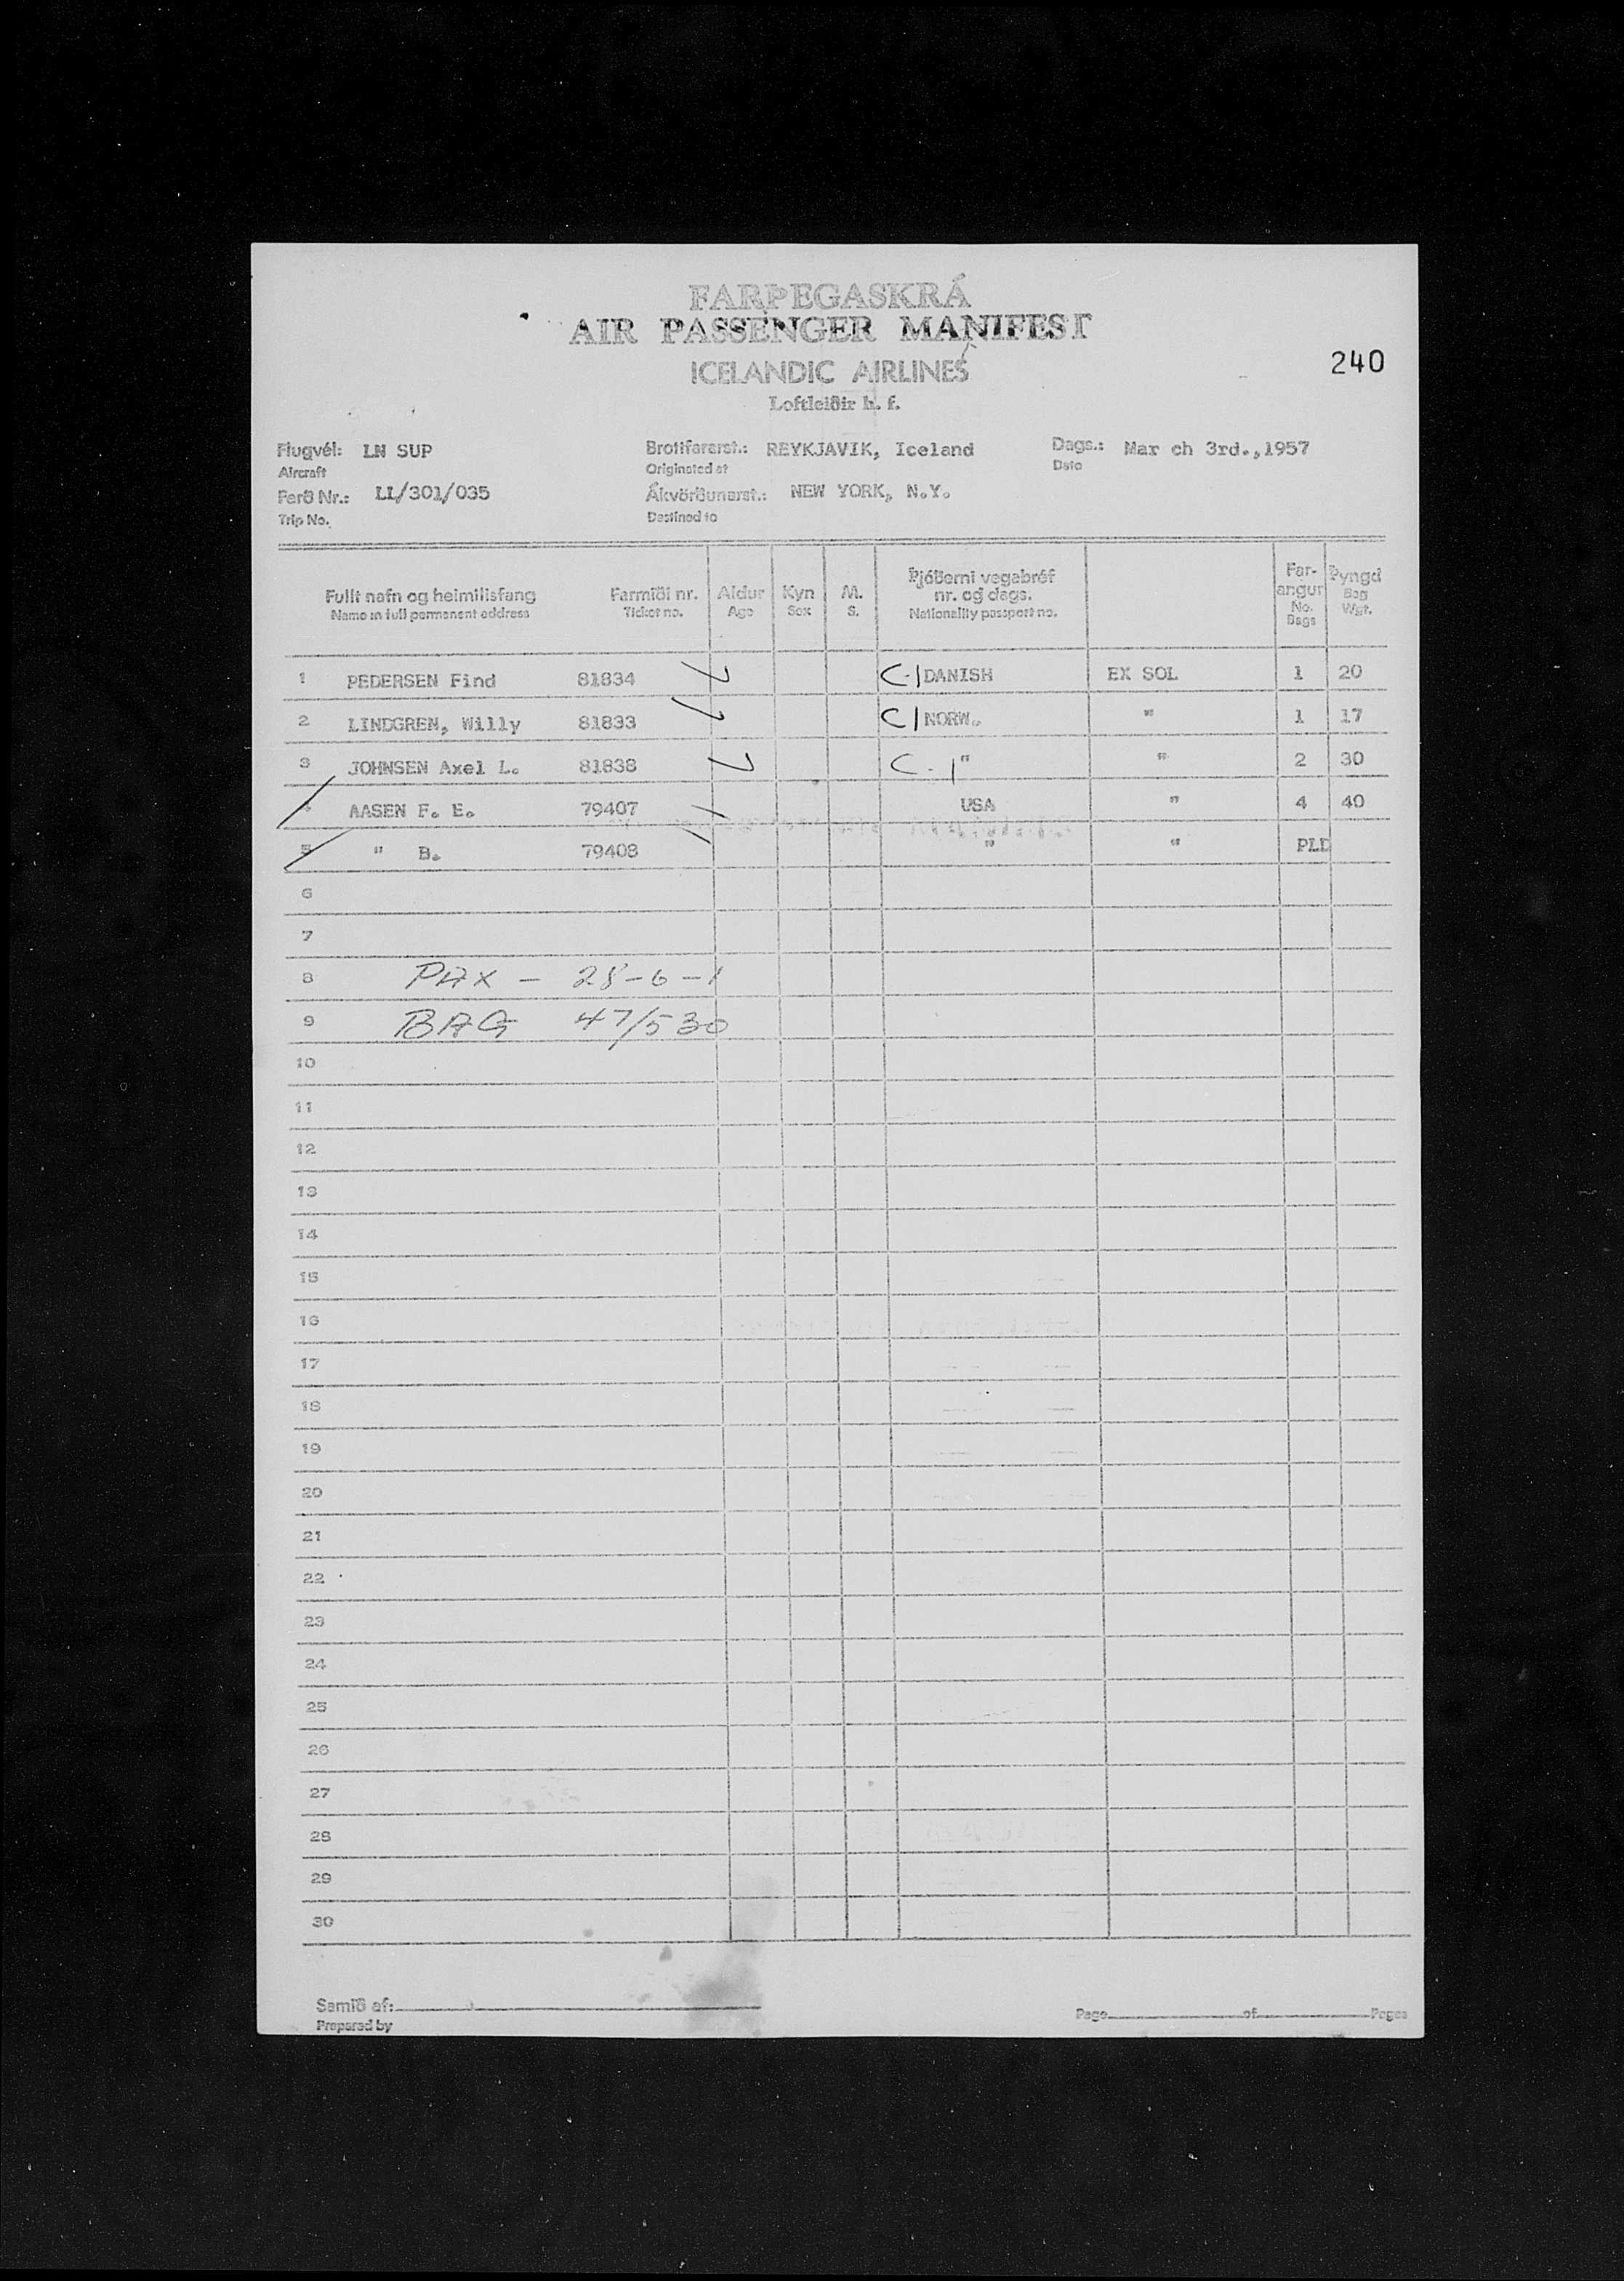 FARÞEGASKRÁ
AIR PASSENGER MANIFEST
ICELANDIC AIRLINES
Loftleiðir h. f.
240
Flugvél: LN SUP Brottfararst.: REYKJAVIK, Iceland Dags.: Mar ch 3rd.,1957
Aircraft Originated at Date
Ferð Nr.: LL/301/035 Ákvörðunarst.: NEW YORK, N.Y.
Trip No. Destined to
Fullt nafn og heimilisfang Farmiði nr. Aldur Kyn M. Þjóðerni vegabréf nr. og dags. Far-angur Þyngd
Name in full permanent address Ticket no. Age Sex S. Nationality passport no. No. Bags Bag Wgt.
1 PEDERSEN Find 81834 C-1 DANISH EX SOL 1 20
2 LINDGREN, Willy 81833 C1 NORW. " 1 17
3 JOHNSEN Axel L. 81838 C-1 " " 2 30
4 AASEN F. E. 79407 USA " 4 40
5 " B. 79408 " " PLD
6
7
8 PAX - 28-6-1
9 BAG 47/530
10
11
12
13
14
15
16
17
18
19
20
21
22
23
24
25
26
27
28
29
30
Samið af:
Prepared by
Page of Pages